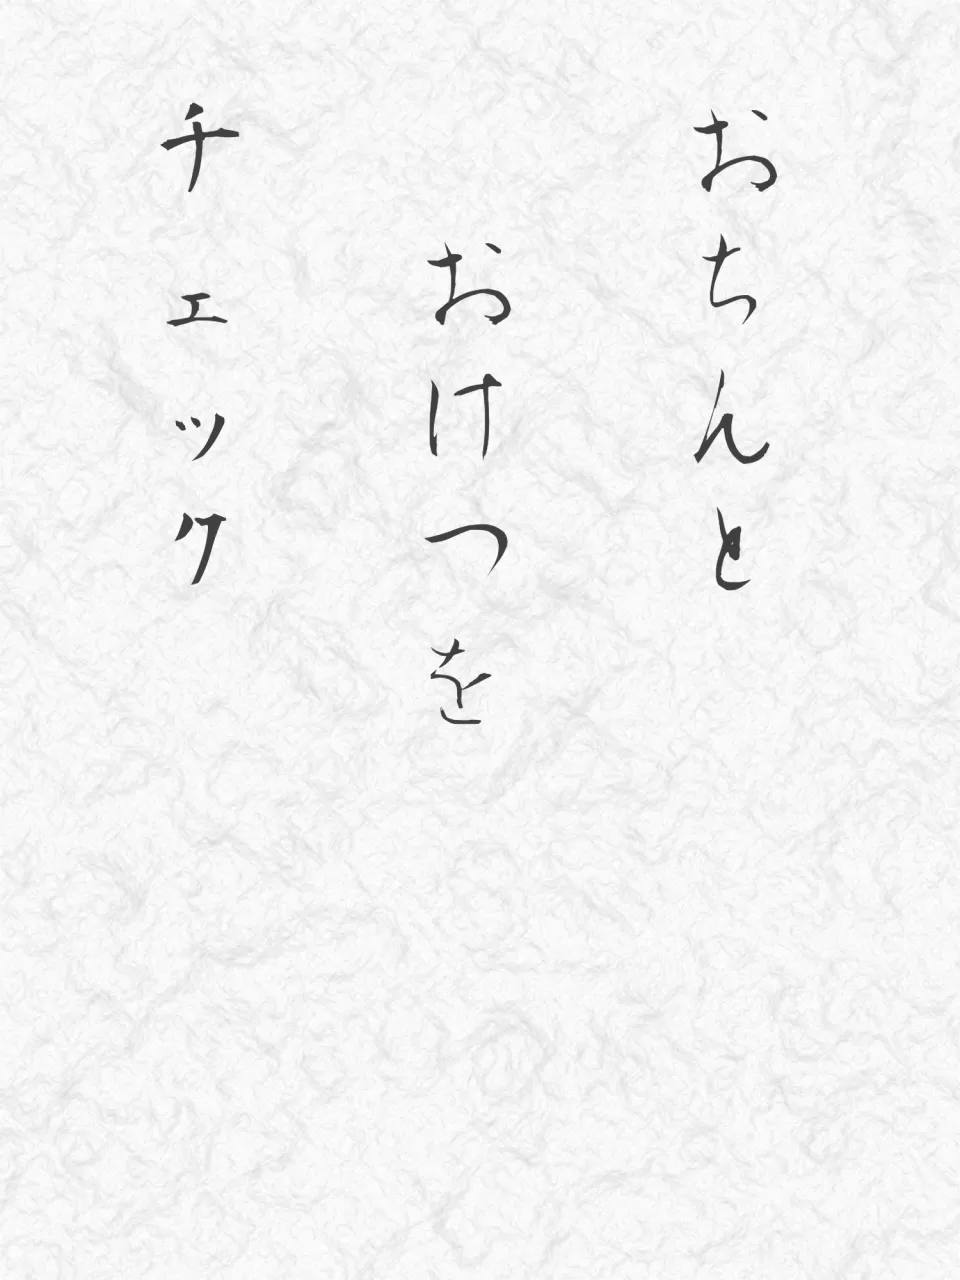 おちんと
おけつを
チェック